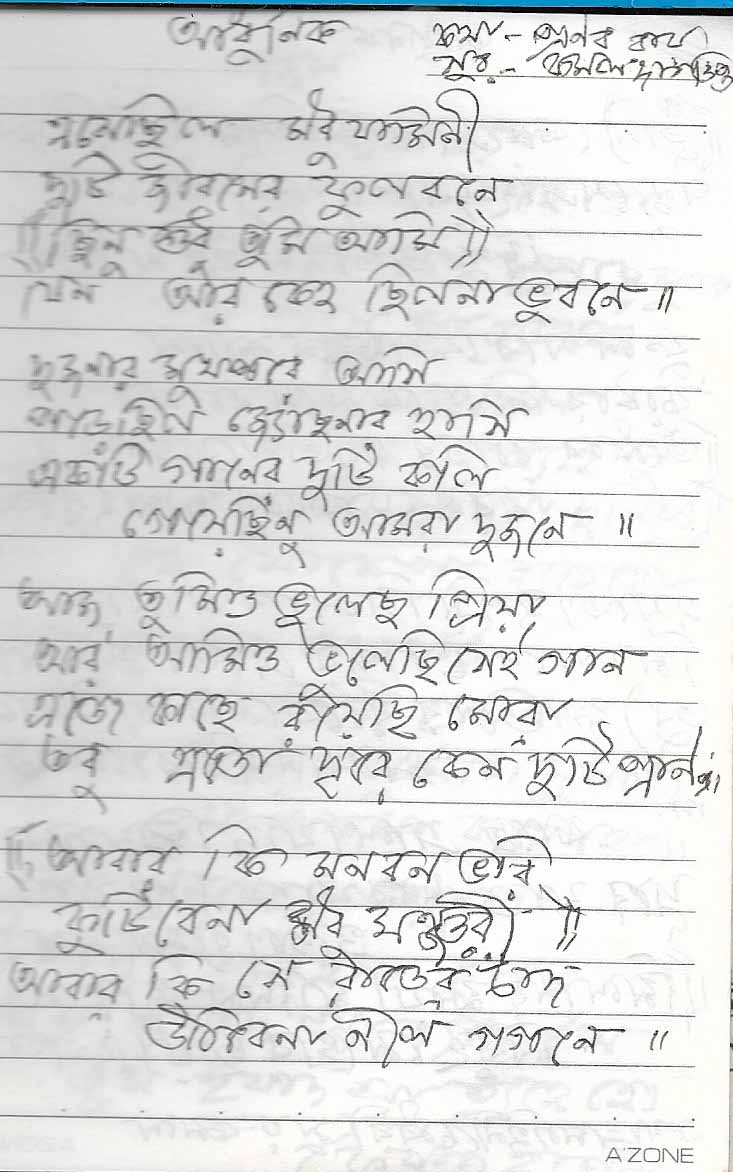 আধুনিক
কথা - প্রনব রায়
সুর - কমল দাশগুপ্ত
এসেছিল মধু যামিনী
দুটি জীবনের ফুল বনে
|| ছিনু শুধু তুমি আমি ||
যেন আর কেহ ছিলনা ভুবনে ||
দুজনার মুখপরে আসি
পড়েছিল জোছনার হাসি
একটি গানের দুটি কলি
গেয়েছিনু আমরা দুজনে ||
আজ তুমিও ভুলেছ প্রিয়া
আর আমিও ভুলেছি সেই গান
এতো কাছে রয়েছি মোরা
তবু এতো দূরে কেন দুটি প্রান
|| আবার কি মনবন ভরি
ফুটিবেনা মধু মঞ্জরী ||
আবার কি সে রাতের চাঁদ
উঠিবেনা নীল গগনে ||
A'ZONE